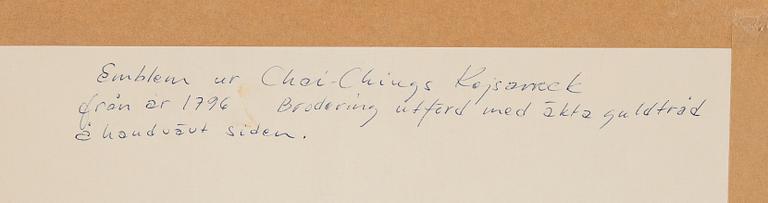 Emblem ur Chai-Chings Kejsarrock
från år 1796 Brodering utförd med äkta guldtråd
å handvävt siden.